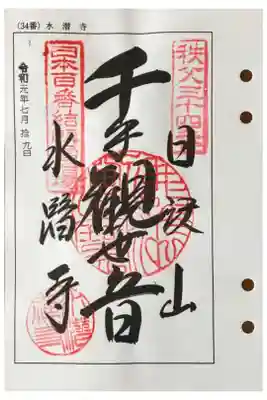 (34番) 水潜寺
秩父三十四番
日沢山
千手観世音
日本百番結願
水潜寺
令和元年七月拾九日